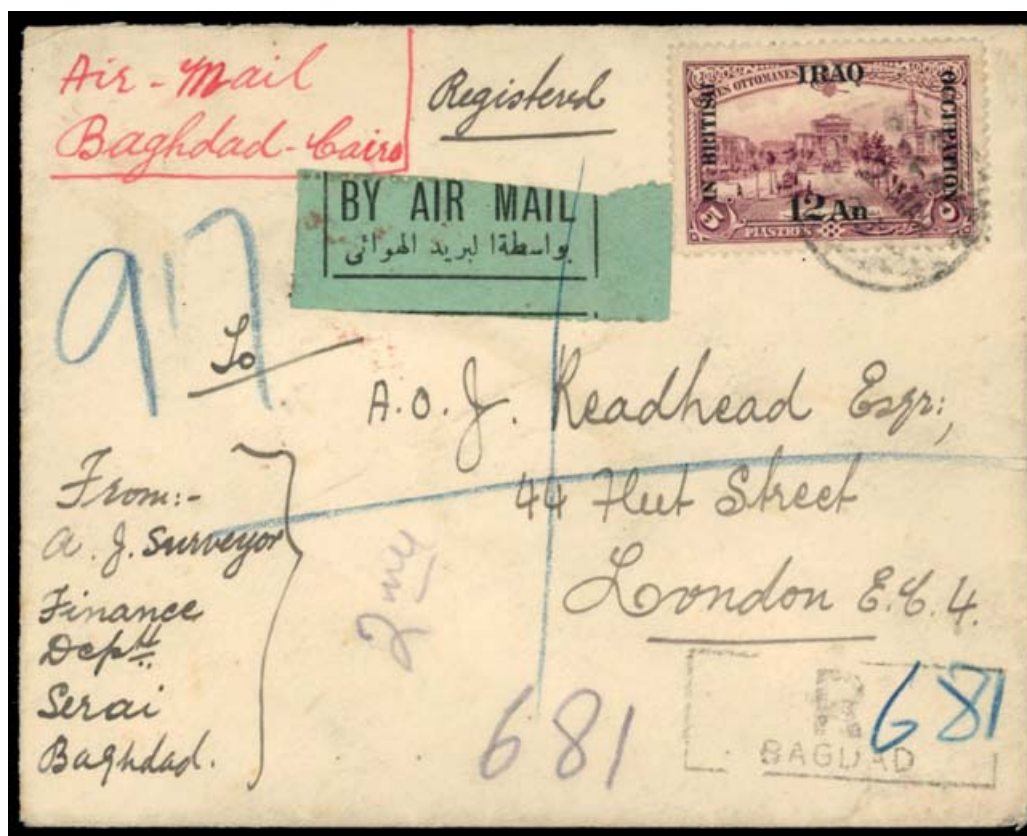 Air-Mail
Baghdad-Cairo
Registered
IRAQ
IN BRITISH
OCCUPATION
ES OTTOMANES
12 An
5
5
PIASTRES
BY AIR MAIL
بواسطة البريد الهوائى
917
To
A. O. J. Readhead Esqr:,
44 Fleet Street
London E.C.4.
From:-
A. J. Surveyor
Finance
Deptt.
Serai
Baghdad.
681
R
681
BAGDAD